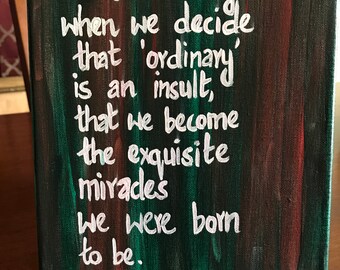 when we decide
that 'ordinary'
is an insult,
that we become
the exquisite
miracles
we were born
to be.